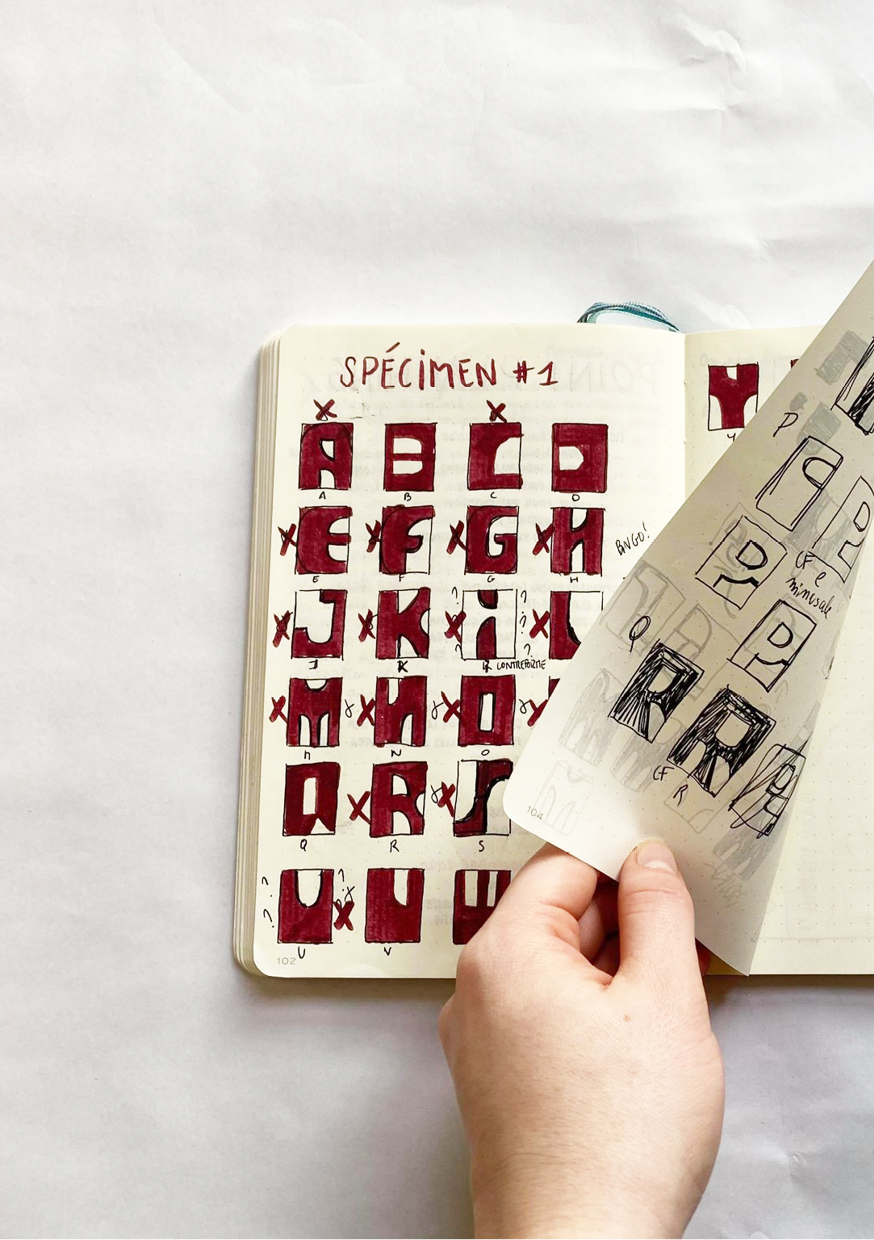 SPÉCIMEN #1
X X
A B C D
A B C D
X E X F X G X H
E F G H
BINGO!
X J X K X i X L
? ? ? ? ? ?
J K CONTREFORME
X M X N X O
M N O
Q X R X S
Q R S
U X V
? ? ? ?
U V
102
Y
P
CF e
minuscule
Q
R R
CF R
104